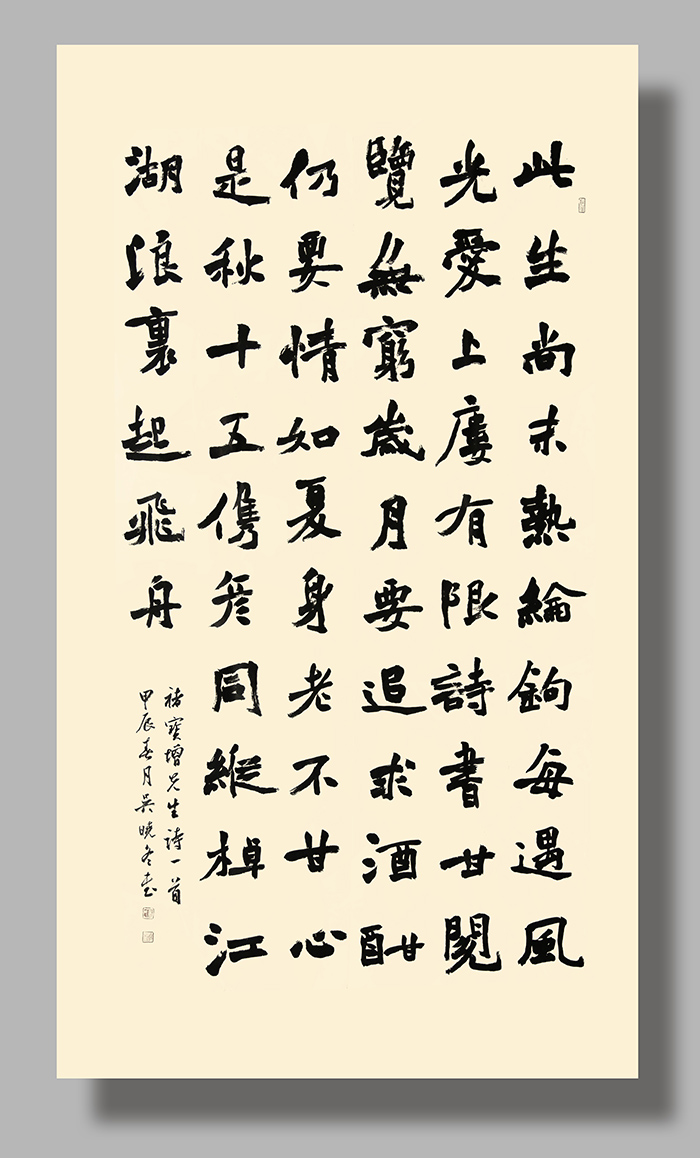 此生尚未熱綸鉤每遇風
光愛上廔有限詩書甘閱
覽無窮歲月要追求酒酣
仍要情如夏身老不甘心
是秋十五儁彥同縱棹江
湖浪裏起飛舟
褚寶增先生詩一首
甲辰春月吳曉冬書